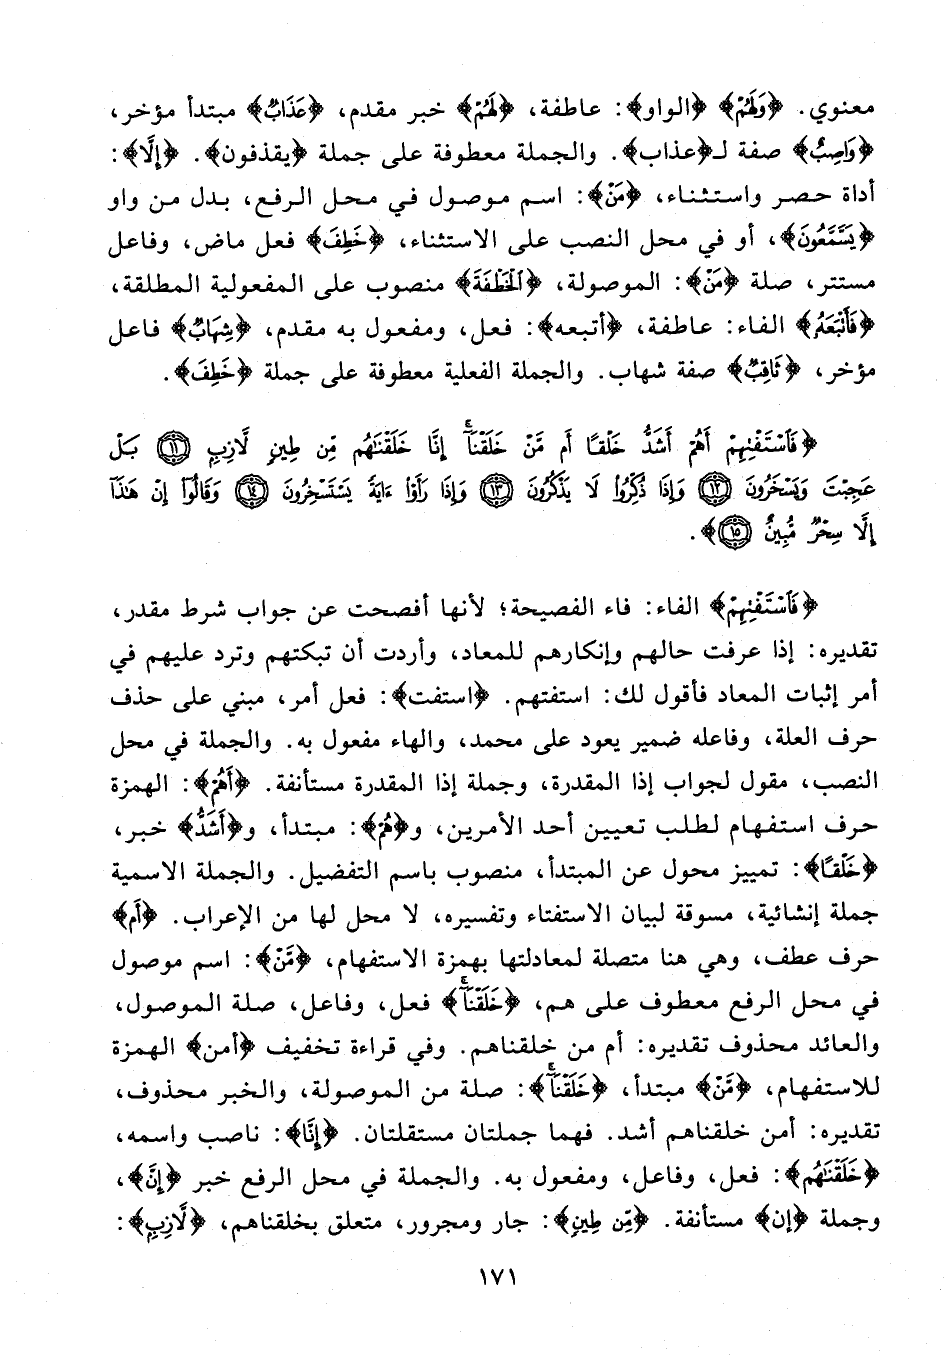 معنوي. ﴿وَلَهُمْ﴾ ﴿الواو﴾: عاطفة، ﴿لَهُمْ﴾ خبر مقدم، ﴿عَذَابٌ﴾ مبتدأ مؤخر،
﴿وَاصِبٌ﴾ صفة لـ﴿عذاب﴾. والجملة معطوفة على جملة ﴿يقذفون﴾. ﴿إِلَّا﴾:
أداة حصر واستثناء، ﴿مَنْ﴾: اسم موصول في محل الرفع، بدل من واو
﴿يَسَّمَّعُونَ﴾، أو في محل النصب على الاستثناء، ﴿خَطِفَ﴾ فعل ماض، وفاعل
مستتر، صلة ﴿مَنْ﴾: الموصولة، ﴿الْخَطْفَةَ﴾ منصوب على المفعولية المطلقة،
﴿فَأَتْبَعَهُ﴾ الفاء: عاطفة، ﴿أتبعه﴾: فعل، ومفعول به مقدم، ﴿شِهَابٌ﴾ فاعل
مؤخر، ﴿ثَاقِبٌ﴾ صفة شهاب. والجملة الفعلية معطوفة على جملة ﴿خَطِفَ﴾.
﴿فَٱسْتَفْتِهِمْ أَهُمْ أَشَدُّ خَلْقًا أَم مَّنْ خَلَقْنَآ إِنَّا خَلَقْنَٰهُم مِّن طِينٍ لَّازِبٍ ١١ بَلْ
عَجِبْتَ وَيَسْخَرُونَ ١٢ وَإِذَا ذُكِّرُوا۟ لَا يَذْكُرُونَ ١٣ وَإِذَا رَأَوْا۟ ءَايَةً يَسْتَسْخِرُونَ ١٤ وَقَالُوٓا۟ إِنْ هَٰذَآ
إِلَّا سِحْرٌ مُّبِينٌ ١٥﴾.
﴿فَٱسْتَفْتِهِمْ﴾ الفاء: فاء الفصيحة؛ لأنها أفصحت عن جواب شرط مقدر،
تقديره: إذا عرفت حالهم وإنكارهم للمعاد، وأردت أن تبكتهم وترد عليهم في
أمر إثبات المعاد فأقول لك: استفتهم. ﴿استفت﴾: فعل أمر، مبني على حذف
حرف العلة، وفاعله ضمير يعود على محمد، والهاء مفعول به. والجملة في محل
النصب، مقول لجواب إذا المقدرة، وجملة إذا المقدرة مستأنفة. ﴿أَهُمْ﴾: الهمزة
حرف استفهام لطلب تعيين أحد الأمرين، و﴿هُمْ﴾: مبتدأ، و﴿أَشَدُّ﴾ خبر،
﴿خَلْقًا﴾: تمييز محول عن المبتدأ، منصوب باسم التفضيل. والجملة الاسمية
جملة إنشائية، مسوقة لبيان الاستفتاء وتفسيره، لا محل لها من الإعراب. ﴿أَم﴾
حرف عطف، وهي هنا متصلة لمعادلتها بهمزة الاستفهام، ﴿مَّنْ﴾: اسم موصول
في محل الرفع معطوف على هم، ﴿خَلَقْنَآ﴾ فعل، وفاعل، صلة الموصول،
والعائد محذوف تقديره: أم من خلقناهم. وفي قراءة تخفيف ﴿أمن﴾ الهمزة
للاستفهام، ﴿مَّنْ﴾ مبتدأ، ﴿خَلَقْنَآ﴾: صلة من الموصولة، والخبر محذوف،
تقديره: أمن خلقناهم أشد. فهما جملتان مستقلتان. ﴿إِنَّا﴾: ناصب واسمه،
﴿خَلَقْنَٰهُم﴾: فعل، وفاعل، ومفعول به. والجملة في محل الرفع خبر ﴿إِنَّ﴾،
وجملة ﴿إن﴾ مستأنفة. ﴿مِّن طِينٍ﴾: جار ومجرور، متعلق بخلقناهم، ﴿لَّازِبٍ﴾:
١٧١